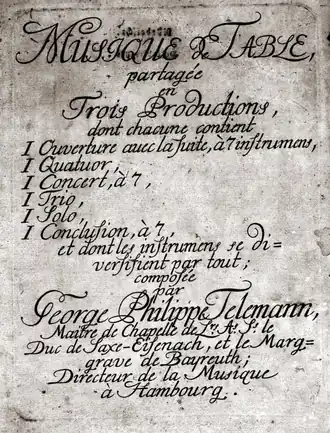 MUSIQUE de TABLE,
partagée
en
Trois Productions,
dont chacune contient
I Ouverture avec la suite, à 7 instrumens,
I Quatuor,
I Concert, à 7,
I Trio,
I Solo,
I Conclusion, à 7,
et dont les instrumens se di=
versifient par tout;
composée
par
George Philippe Telemann,
Maître de Chapelle de L.rs A.s S.t le
Duc de Saxe-Eisenach, et le Marg=
grave de Bayreuth;
Directeur de la Musique
à Hambourg.